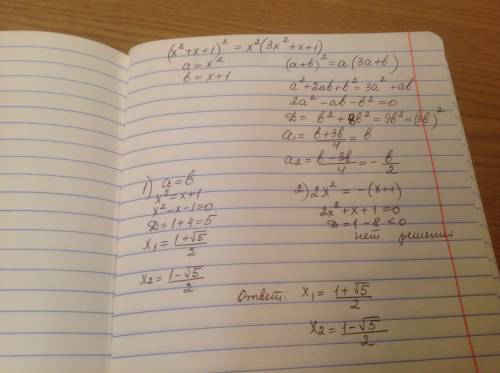 (x² + x + 1)² = x²(3x² + x + 1)
a = x²
b = x + 1
(a + b)² = a(3a + b)
a² + 2ab + b² = 3a² + ab
2a² - ab - b² = 0
D = b² + 8b² = 9b² = (3b)²
a₁ = (b + 3b)/4 = b
a₂ = (b - 3b)/4 = -b/2
1) a = b
x² = x + 1
x² - x - 1 = 0
D = 1 + 4 = 5
x₁ = (1 + √5)/2
x₂ = (1 - √5)/2
2) 2x² = -(x + 1)
2x² + x + 1 = 0
D = 1 - 8 < 0
нет решений
Ответ: x₁ = (1 + √5)/2
x₂ = (1 - √5)/2